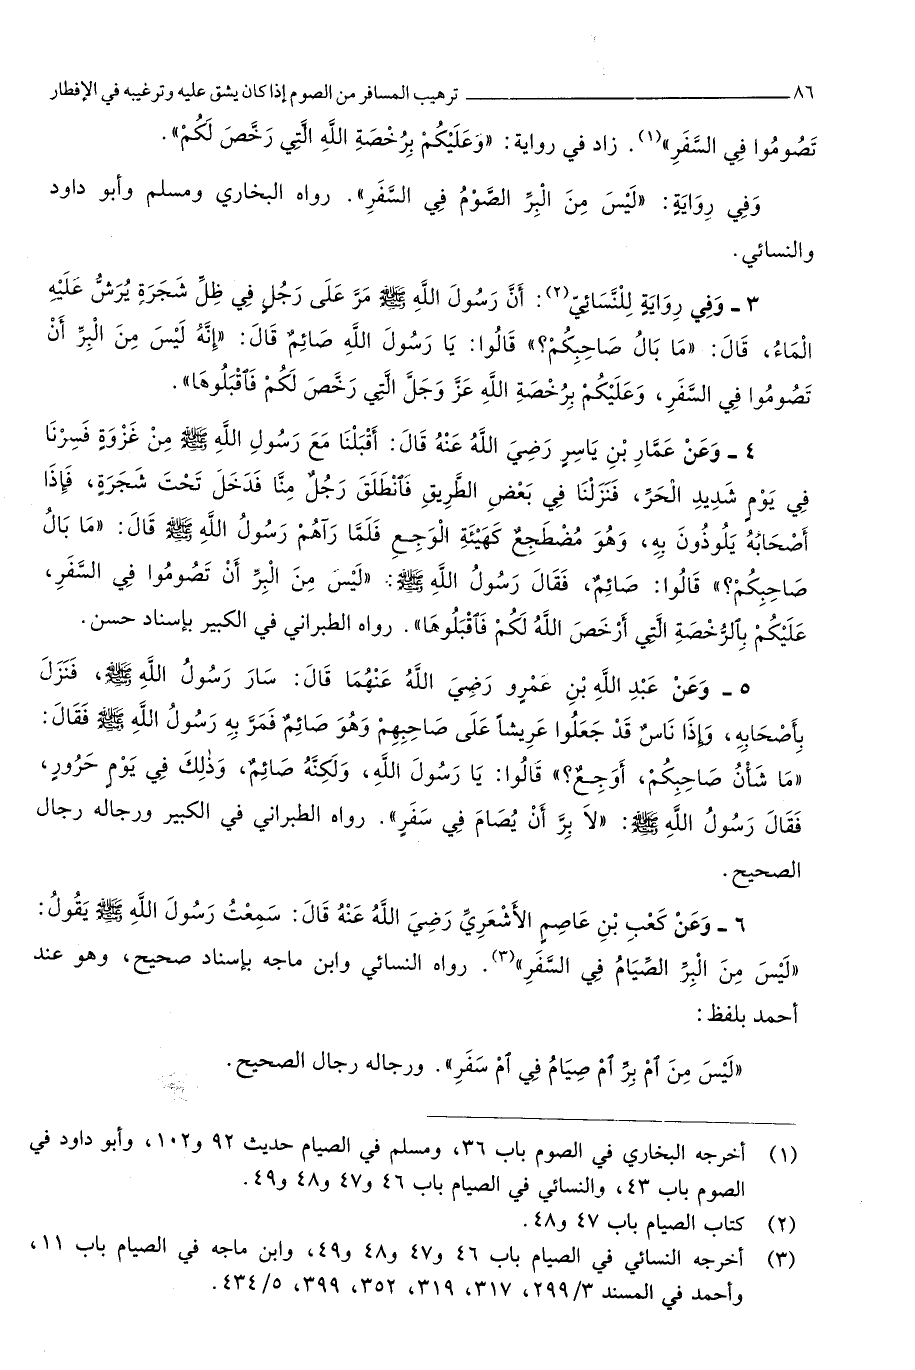 ٨٦ ــــــــــــــــ ترهيب المسافر من الصوم إذا كان يشق عليه وترغيبه في الإفطار
تَصُومُوا فِي السَّفَرِ»(١). زاد في رواية: «وَعَلَيْكُمْ بِرُخْصَةِ اللَّهِ الَّتِي رَخَّصَ لَكُمْ».
وَفِي رِوَايَةٍ: «لَيْسَ مِنَ الْبِرِّ الصَّوْمُ فِي السَّفَرِ». رواه البخاري ومسلم وأبو داود
والنسائي.
٣ ـ وَفِي رِوَايَةٍ لِلنَّسَائِيِّ(٢): أَنَّ رَسُولَ اللَّهِ ﷺ مَرَّ عَلَى رَجُلٍ فِي ظِلِّ شَجَرَةٍ يُرَشُّ عَلَيْهِ
الْمَاءُ، قَالَ: «مَا بَالُ صَاحِبِكُمْ؟» قَالُوا: يَا رَسُولَ اللَّهِ صَائِمٌ قَالَ: «إِنَّهُ لَيْسَ مِنَ الْبِرِّ أَنْ
تَصُومُوا فِي السَّفَرِ، وَعَلَيْكُمْ بِرُخْصَةِ اللَّهِ عَزَّ وَجَلَّ الَّتِي رَخَّصَ لَكُمْ فَاقْبَلُوهَا».
٤ ـ وَعَنْ عَمَّارِ بْنِ يَاسِرٍ رَضِيَ اللَّهُ عَنْهُ قَالَ: أَقْبَلْنَا مَعَ رَسُولِ اللَّهِ ﷺ مِنْ غَزْوَةٍ فَسِرْنَا
فِي يَوْمٍ شَدِيدِ الْحَرِّ، فَنَزَلْنَا فِي بَعْضِ الطَّرِيقِ فَانْطَلَقَ رَجُلٌ مِنَّا فَدَخَلَ تَحْتَ شَجَرَةٍ، فَإِذَا
أَصْحَابُهُ يَلُوذُونَ بِهِ، وَهُوَ مُضْطَجِعٌ كَهَيْئَةِ الْوَجِعِ فَلَمَّا رَآهُمْ رَسُولُ اللَّهِ ﷺ قَالَ: «مَا بَالُ
صَاحِبِكُمْ؟» قَالُوا: صَائِمٌ، فَقَالَ رَسُولُ اللَّهِ ﷺ: «لَيْسَ مِنَ الْبِرِّ أَنْ تَصُومُوا فِي السَّفَرِ،
عَلَيْكُمْ بِالرُّخْصَةِ الَّتِي أَرْخَصَ اللَّهُ لَكُمْ فَاقْبَلُوهَا». رواه الطبراني في الكبير بإسناد حسن.
٥ ـ وَعَنْ عَبْدِ اللَّهِ بْنِ عَمْرٍو رَضِيَ اللَّهُ عَنْهُمَا قَالَ: سَارَ رَسُولُ اللَّهِ ﷺ، فَنَزَلَ
بِأَصْحَابِهِ، وَإِذَا نَاسٌ قَدْ جَعَلُوا عَرِيشاً عَلَى صَاحِبِهِمْ وَهُوَ صَائِمٌ فَمَرَّ بِهِ رَسُولُ اللَّهِ ﷺ فَقَالَ:
«مَا شَأْنُ صَاحِبِكُمْ، أَوَجِعٌ؟» قَالُوا: يَا رَسُولَ اللَّهِ، وَلَكِنَّهُ صَائِمٌ، وَذٰلِكَ فِي يَوْمٍ حَرُورٍ،
فَقَالَ رَسُولُ اللَّهِ ﷺ: «لاَ بِرَّ أَنْ يُصَامَ فِي سَفَرٍ». رواه الطبراني في الكبير ورجاله رجال
الصحيح.
٦ ـ وَعَنْ كَعْبِ بْنِ عَاصِمٍ الأَشْعَرِيِّ رَضِيَ اللَّهُ عَنْهُ قَالَ: سَمِعْتُ رَسُولَ اللَّهِ ﷺ يَقُولُ:
«لَيْسَ مِنَ الْبِرِّ الصِّيَامُ فِي السَّفَرِ»(٣). رواه النسائي وابن ماجه بإسناد صحيح، وهو عند
أحمد بلفظ:
«لَيْسَ مِنَ اَمْ بِرِّ اَمْ صِيَامُ فِي اَمْ سَفَرِ». ورجاله رجال الصحيح.
(١) أخرجه البخاري في الصوم باب ٣٦، ومسلم في الصيام حديث ٩٢ و١٠٢، وأبو داود في
الصوم باب ٤٣، والنسائي في الصيام باب ٤٦ و٤٧ و٤٨ و٤٩.
(٢) كتاب الصيام باب ٤٧ و٤٨.
(٣) أخرجه النسائي في الصيام باب ٤٦ و٤٧ و٤٨ و٤٩، وابن ماجه في الصيام باب ١١،
وأحمد في المسند ٢٩٩/٣، ٣١٧، ٣١٩، ٣٥٢، ٣٩٩، ٤٣٤/٥.